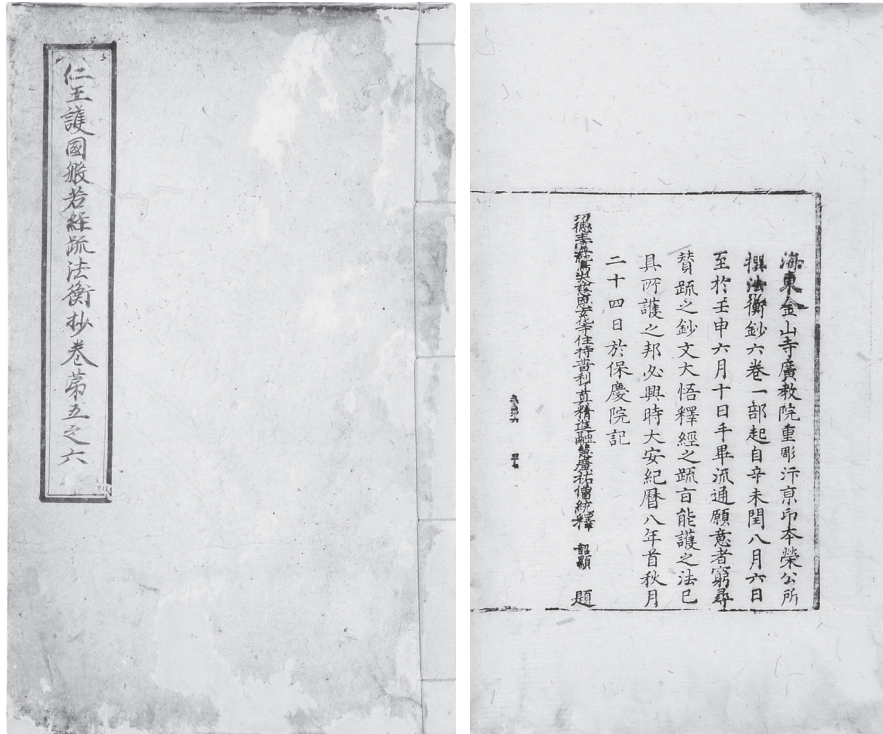 仁王護國般若經疏法衡抄卷第五之六
海東金山寺廣教院重彫汴京印本榮公所
撰法衡鈔六卷一部起自辛未閏八月六日
至於壬申六月十日手畢流通願意者窮尋
賛疏之鈔文大悟釋經之疏言能護之法已
具所護之邦必興時大安紀曆八年首秋月
二十四日於保慶院記
住持普利真精進融慧廣祐僧統釋 韶顯 題